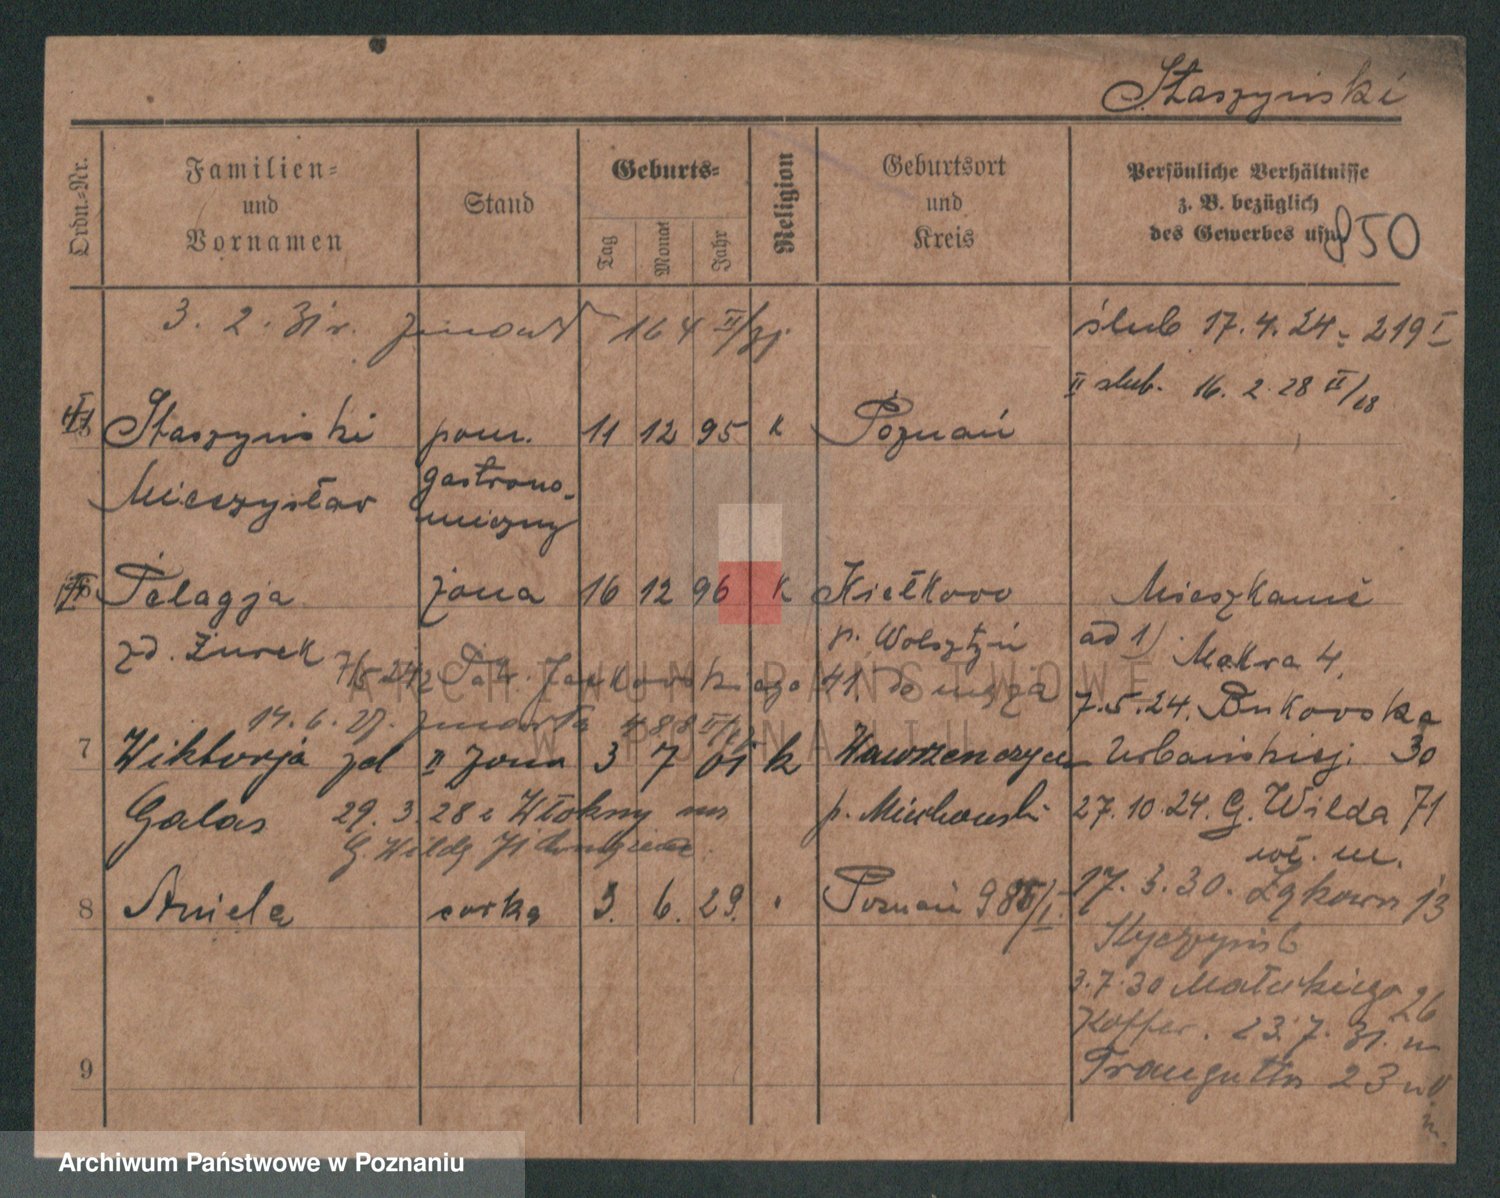 Staszyński
Ordn.-Nr.
Familien-
und
Vornamen
Stand
Geburts-
Tag
Monat
Jahr
Religion
Geburtsort
und
Kreis
Persönliche Verhältnisse
z. B. bezüglich
des Gewerbes usw.
850
3. 2. 31 r. zmarł 164 II/zg.
ślub 17.4.24 r. 219 I
II ślub. 16. 2. 28 II/68
Staszyński pom. 11 12 95 k Poznań
Mieczysław gastrono-
miczny
Pelagja żona 16 12 96 k Kiełkowo Mieszkanie
zd. Żurek p. Wolsztyn ad 1) Mokra 4,
7/5 24 z Patr. Jackowskiego 41 do męża 7.5.24. Bukowska
14. 6. 27. zmarła 488 II/zg
7 Wiktorja zd II żona 3 7 01 k Wawrzenczyce Urbańskiej. 30
Galas 29. 3. 28 z p. Miechowski 27.10.24. G. Wilda 71
G. Wildy 71 wł. m.
8 Aniela córka 3. 6. 29. Poznań 986/I. 17. 3. 30. Łąkowa 13
Styczyńsk
3.7.30 Małeckiego 26
Koffer. 23. 7. 31. m
9 Traugutta 23
m.
ARCHIWUM PAŃSTWOWE
W POZNANIU
Archiwum Państwowe w Poznaniu